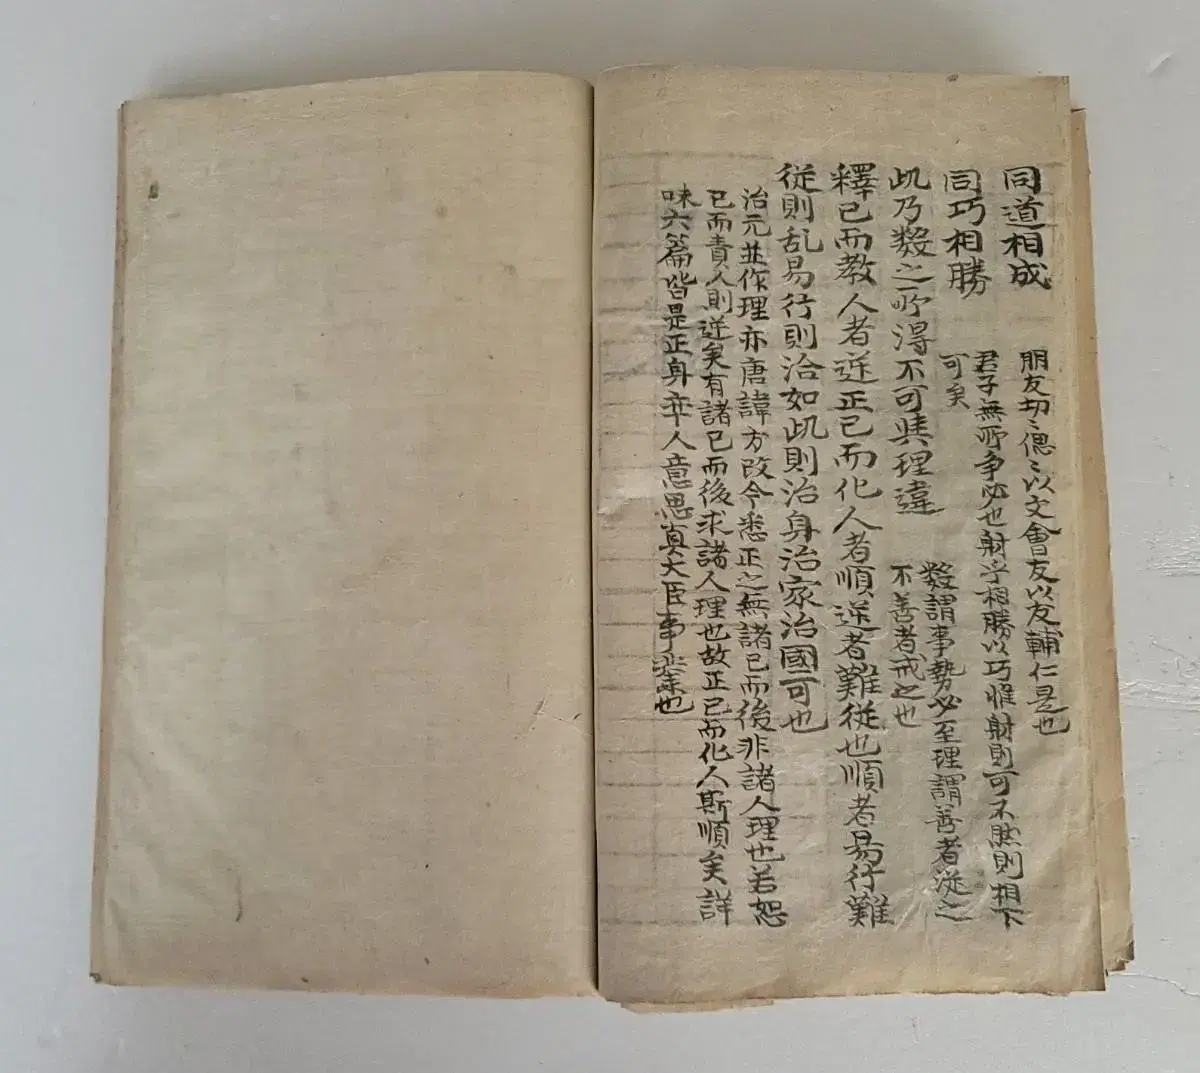 同道相成
朋友切〻偲〻以文會友以友輔仁是也
同巧相勝
君子無所争必也射乎相勝以巧惟射則可不然則相下
可矣
此乃数之所得不可與理違
数謂事勢必至理謂善者從之
不善者戒之也
釋已而教人者逆正已而化人者順逆者難従也順者易行難
従則乱易行則治如此則治身治家治國可也
治元並作理亦唐諱方改今悉正之無諸已而後非諸人理也若恕
已而責人則逆矣有諸已而後求諸人理也故正已而化人斯順矣詳
味六篇皆是正身率人意思真大臣事業也